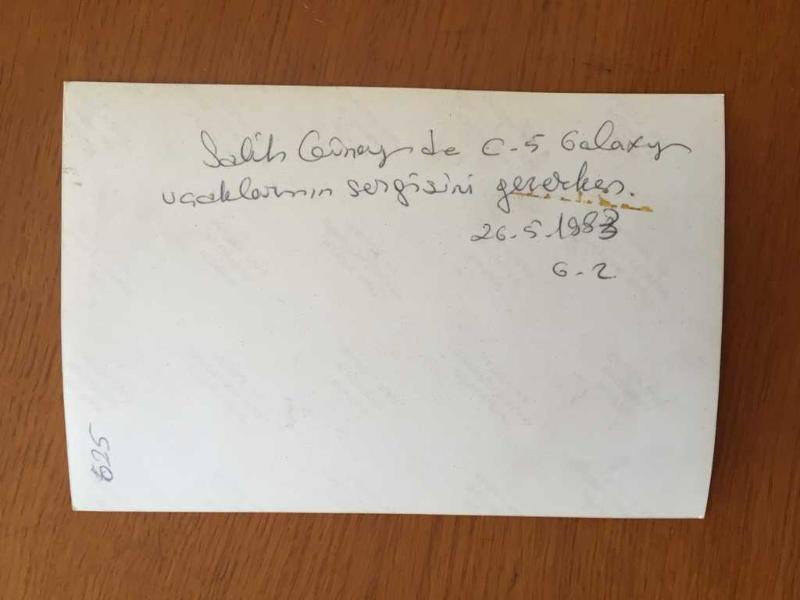 Salih Güney de C-5 Galaxy
uçaklarının sergisini gezerken.
26-5-1983
G-2
525